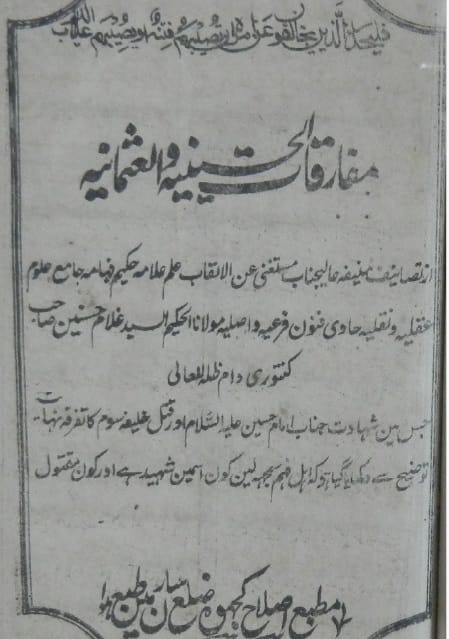 فلیحذر الذین یخالفون عن امرہ ان تصیبہم فتنۃ او یصیبہم عذاب
مفارقات الحسینیہ والعثمانیہ
از تصانیف منیفہ عالیجناب مستغنی عن الالقاب علم علامہ حکیم فہامہ جامع علوم
عقلیہ و نقلیہ حاوی فنون فرعیہ و اصلیہ مولانا الحکیم السید غلام حسنین صاحب
کنتوری دام ظلہ العالی
جس مین شہادت جناب امام حسین علیہ السّلام اور قتل خلیفہ سوم کا تفرقہ نہایت
توضیح سے دکھلایا گیا ہو کہ اہل فہم سمجھ لین کون اسمین شہید ہے اور کون مقتول
مطبع اصلاح کھجوہ ضلع سارن مین طبع ہوا